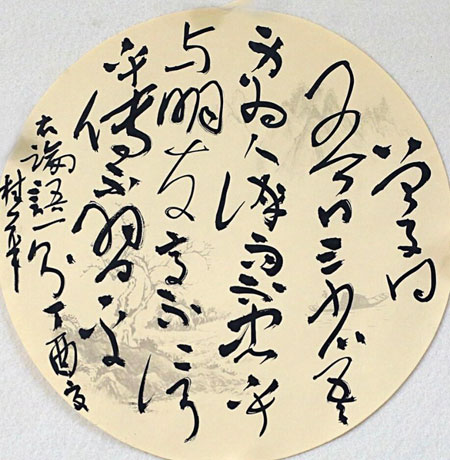 曾子曰
吾日三省吾
身為人謀而不忠乎
与朋友交而不信
乎傳不習乎
右論語一則丁酉夏